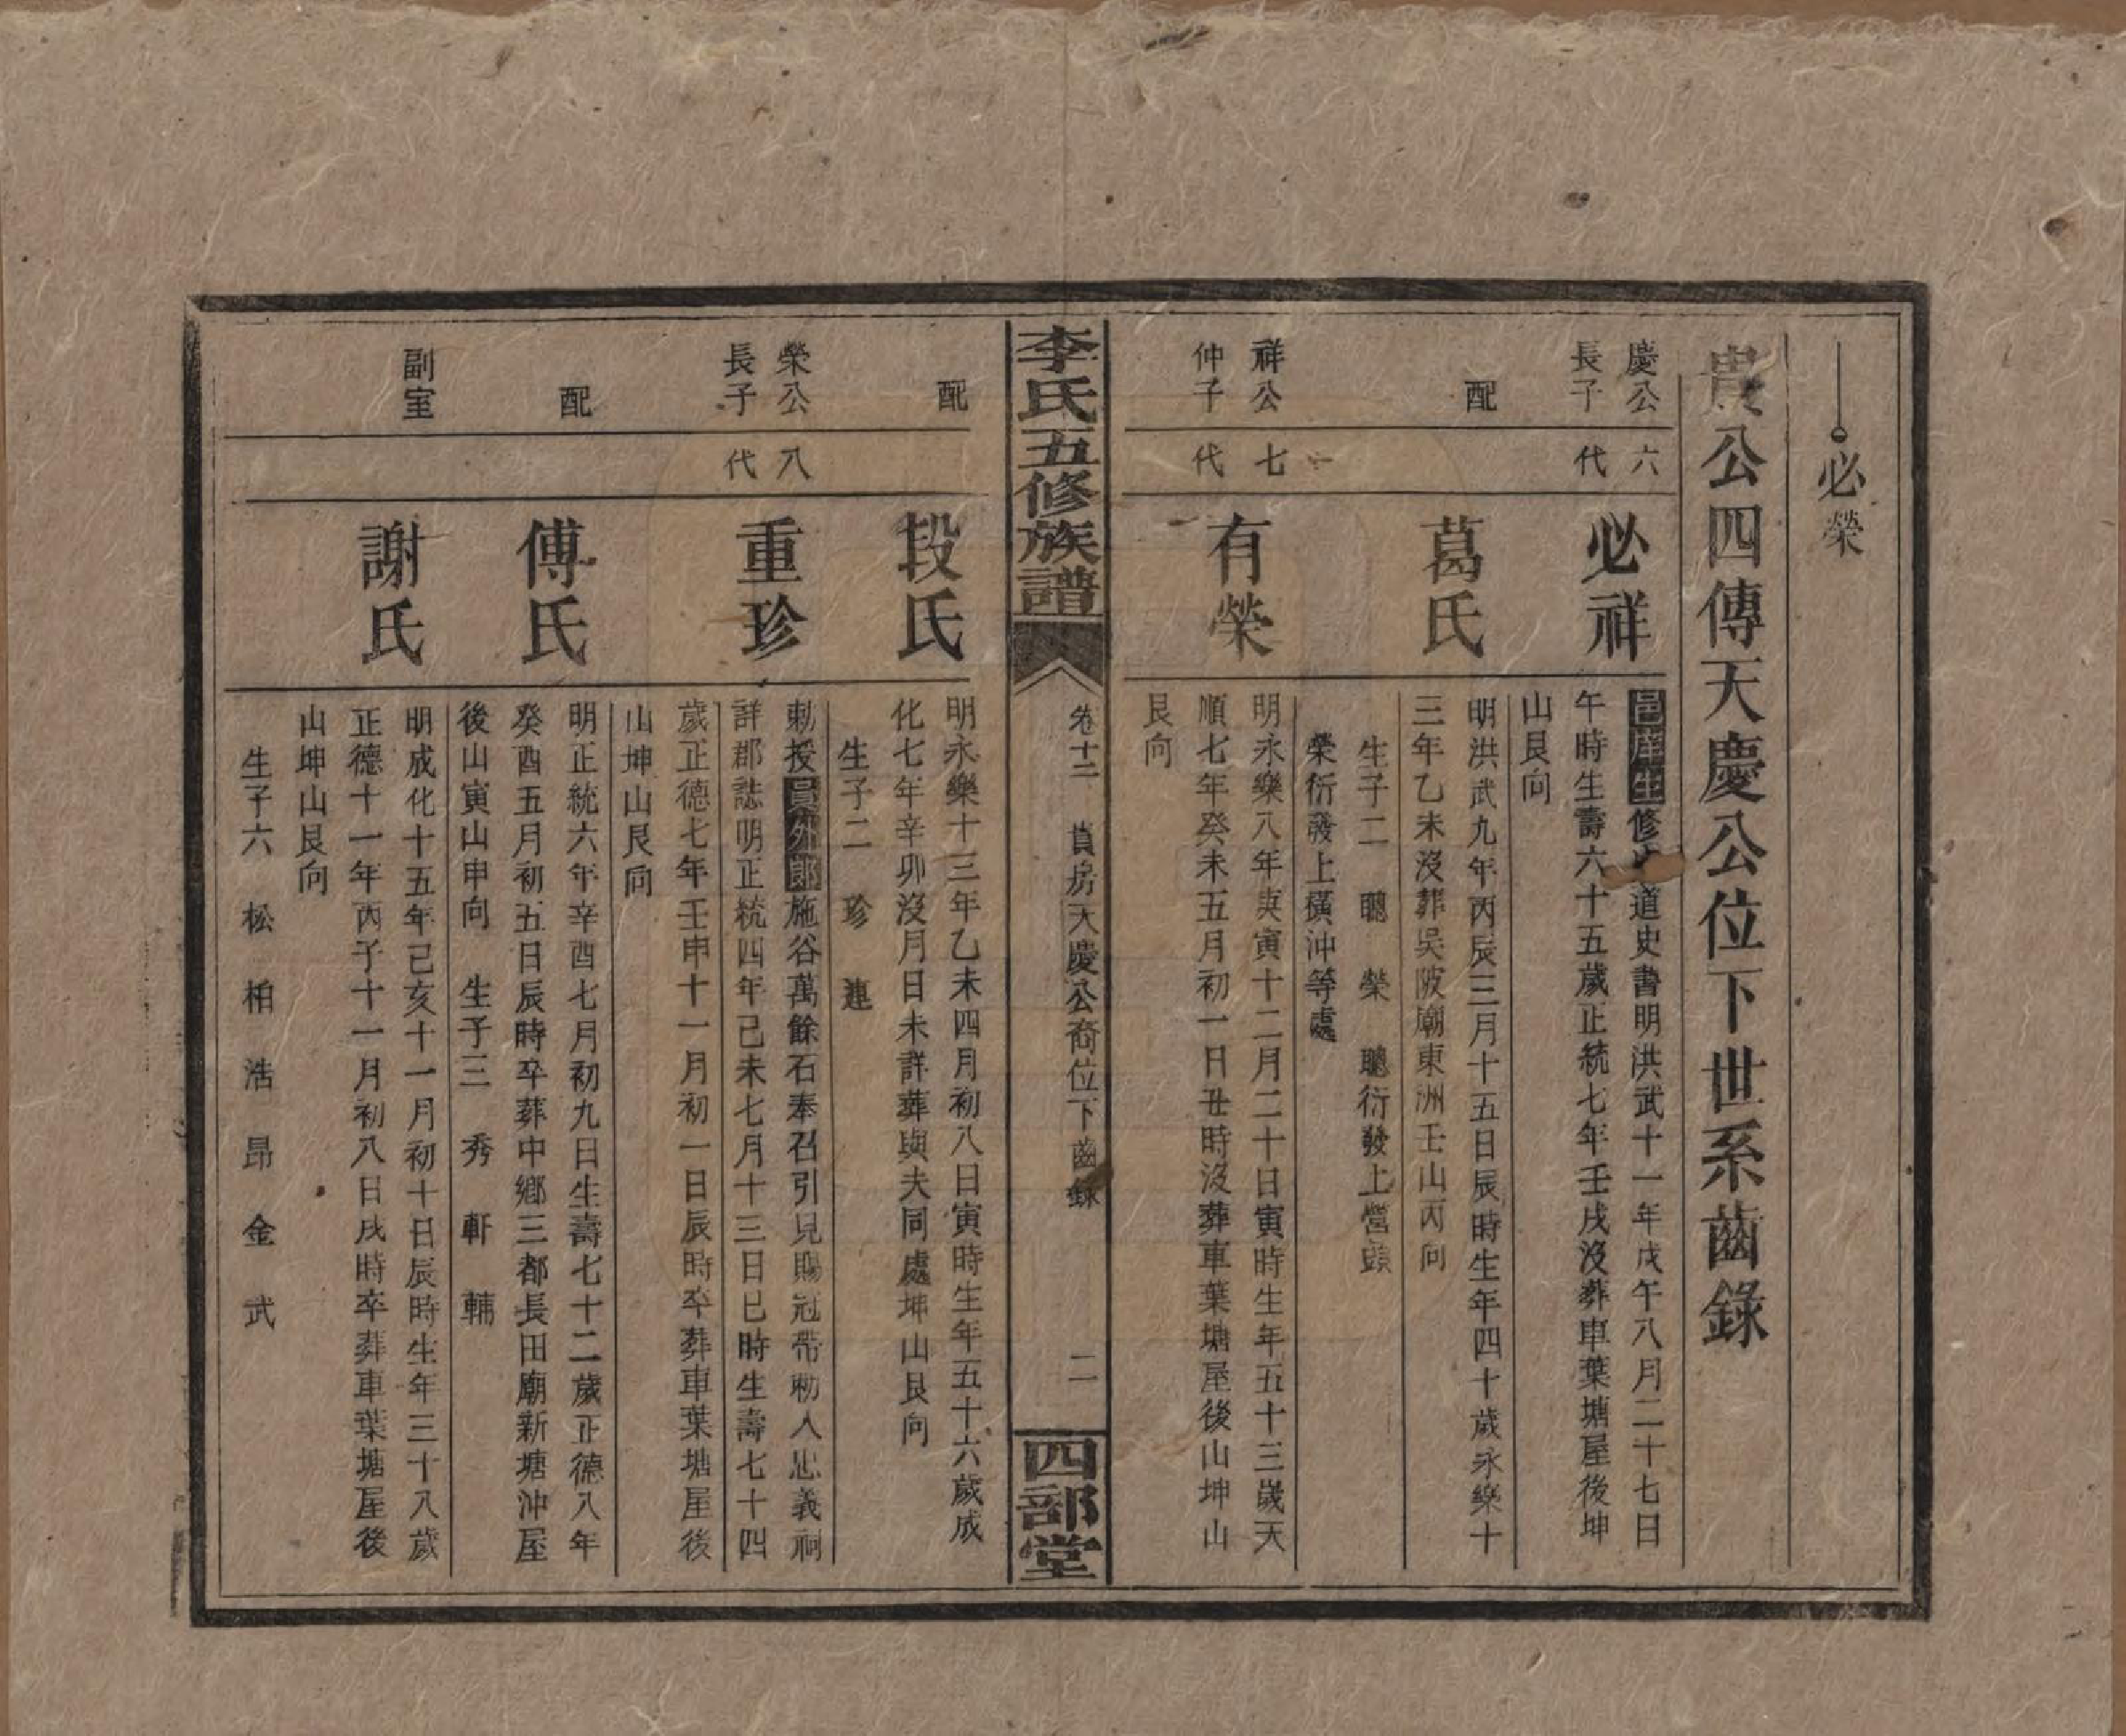 必榮
貴公四傳天慶公位下世系齒錄
慶公
長子
六代
必祥
邑庠生修 道史書明洪武十一年戊午八月二十七日
午時生壽六十五歲正統七年壬戌沒葬車葉塘屋後坤
山艮向
配
葛氏
明洪武九年丙辰三月十五日辰時生年四十歲永樂十
三年乙未沒葬吳陂廟東洲壬山丙向
生子二 聰 榮 聰衍發上營頭
榮衍發上橫沖等處
祥公
仲子
七代
有榮
明永樂八年庚寅十二月二十日寅時生年五十三歲天
順七年癸未五月初一日丑時沒葬車葉塘屋後山坤山
艮向
李氏五修族譜
卷十二 貴房天慶公裔位下齒錄
二
四部堂
配
段氏
明永樂十三年乙未四月初八日寅時生年五十六歲成
化七年辛卯沒月日未詳葬與夫同處坤山艮向
生子二 珍 蓮
榮公
長子
八代
重珍
勅授員外郎施谷萬餘石奉召引見賜冠帶勅入忠義祠
詳郡誌明正統四年己未七月十三日巳時生壽七十四
歲正德七年壬申十一月初一日辰時卒葬車葉塘屋後
山坤山艮向
配
傅氏
明正統六年辛酉七月初九日生壽七十二歲正德八年
癸酉五月初五日辰時卒葬中鄉三都長田廟新塘沖屋
後山寅山申向 生子三 秀 軒 輔
副室
謝氏
明成化十五年己亥十一月初十日辰時生年三十八歲
正德十一年丙子十一月初八日戌時卒葬車葉塘屋後
山坤山艮向
生子六 松 柏 浩 昂 金 武